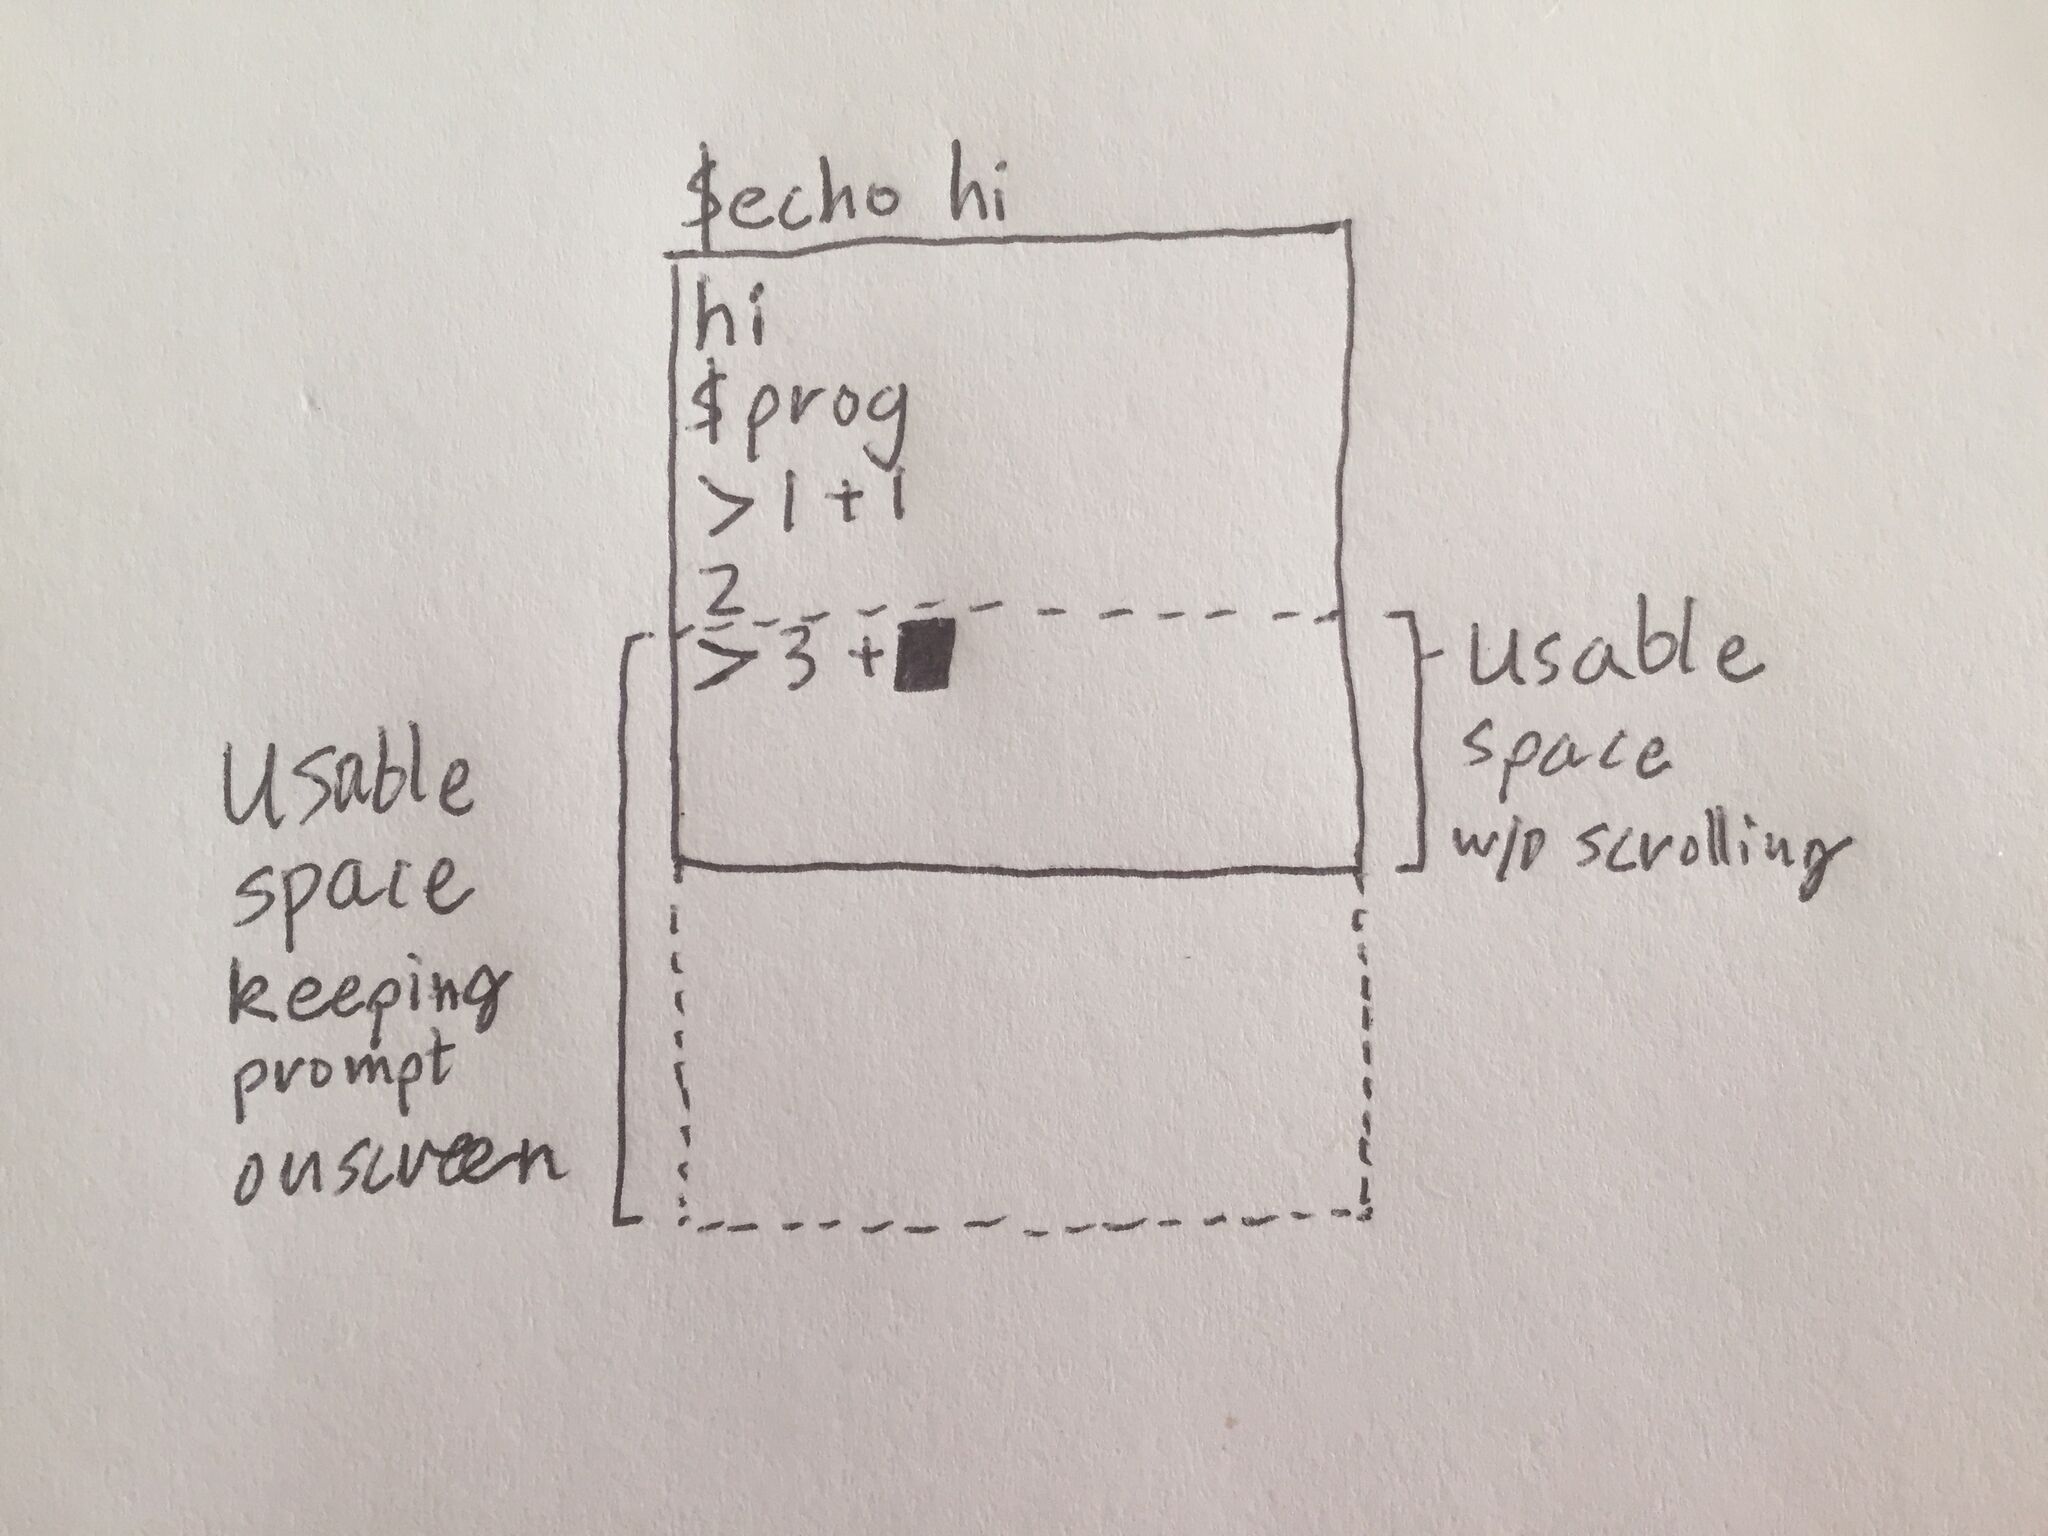 $echo hi
hi
$prog
>1+1
2
>3+
usable
space
w/o scrolling
Usable
space
keeping
prompt
onscreen